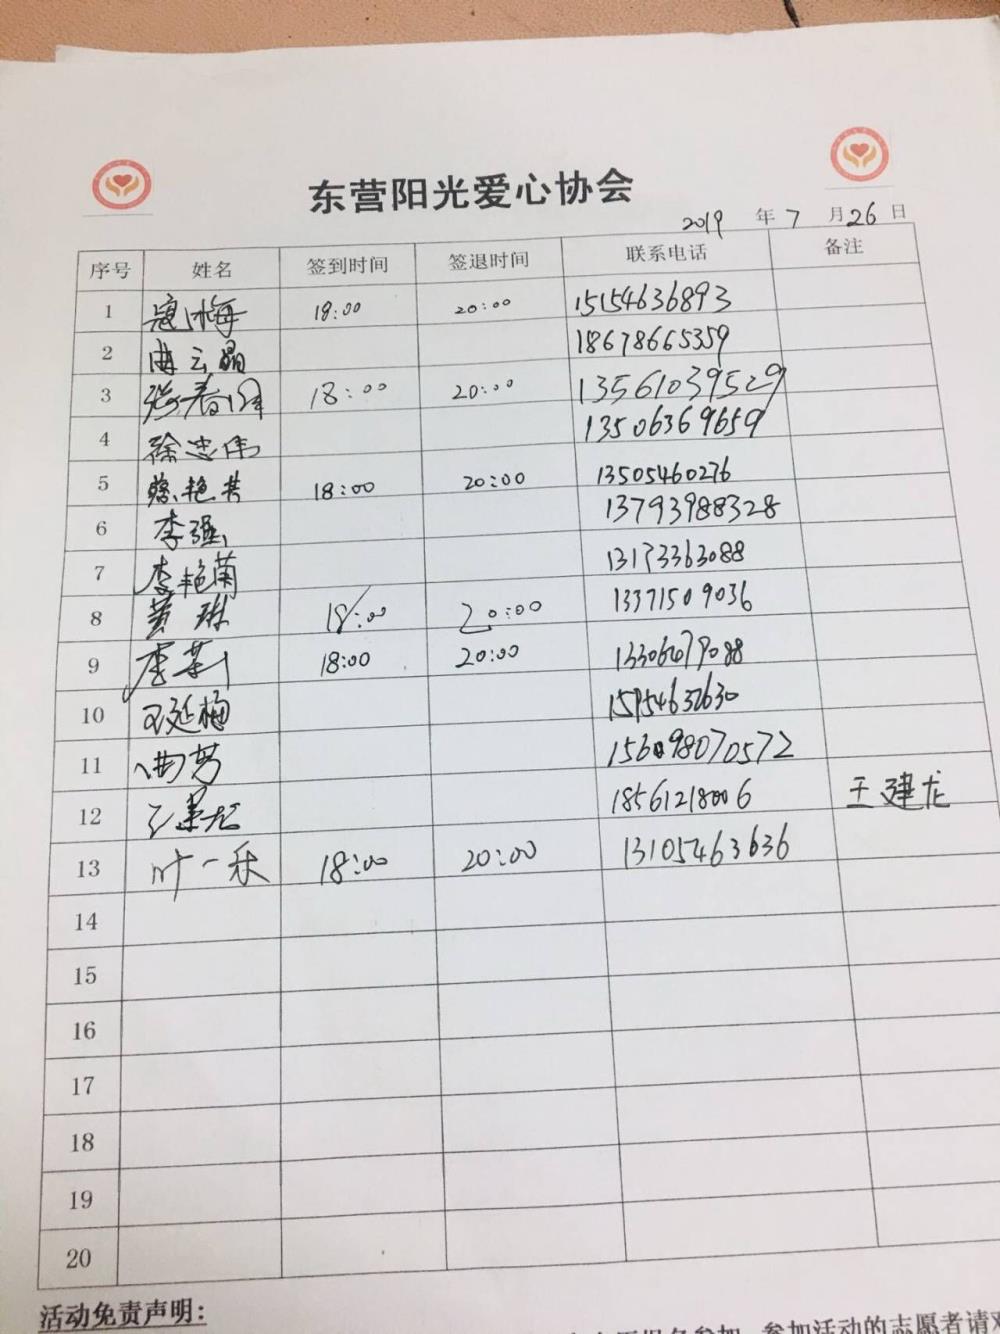 东营阳光爱心协会
2019 年 7 月 26 日
序号 姓名 签到时间 签退时间 联系电话 备注
1 寇冰梅 18:00 20:00 15154636893
2 曲云晶 18678665359
3 张春 18:00 20:00 13561039529
4 徐忠伟 13506369659
5 艳芸 18:00 20:00 13505460276
6 李强 13793988328
7 李艳菊 13173363088
8 黄琳 18:00 20:00 13371509036
9 李莉 18:00 20:00
10 王延梅 15954632630
11 曲芳
12 王建龙 18561218006 王建龙
13 叶一禾 18:00 20:00 13105463636
14
15
16
17
18
19
20
活动免责声明:
参加活动的志愿者请